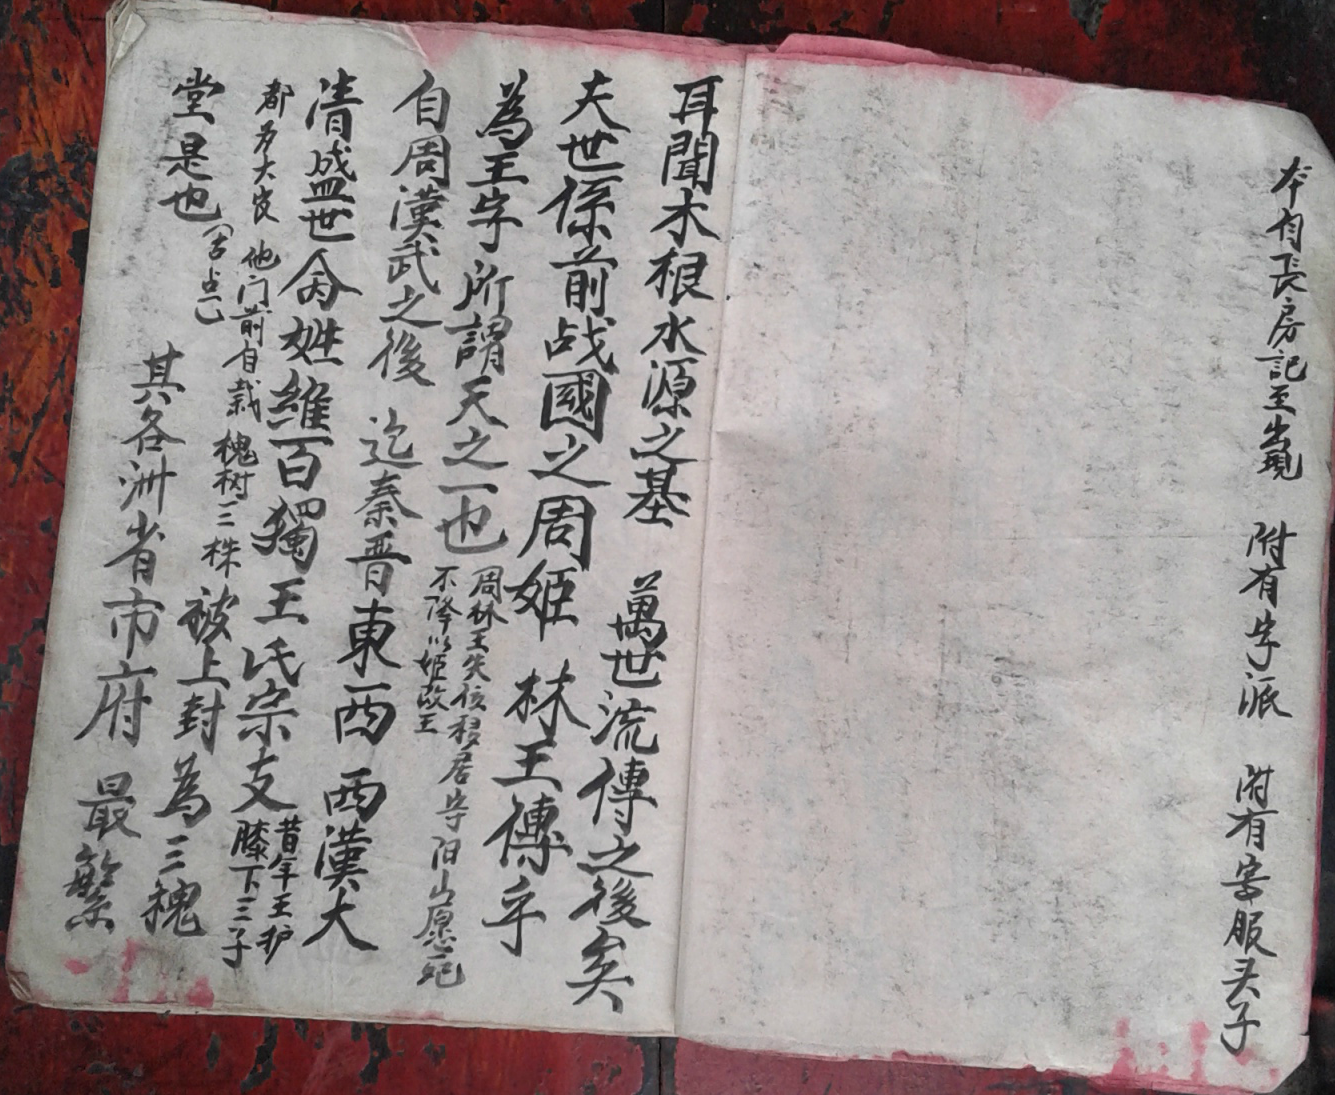 本自長房記至崀覌 附有字派 附有寄服头子
耳聞木根水源之基 萬世流傳之後矣
夫世係前战國之周姬 林王傳乎
為王字所謂天之一也
周林王失位移居守旧山愿死
不降以姬改王
自周漢武之後 迄秦晋東西 西漢大
清成盛世 禽姓維百獨王氏宗支
昔年王护
膝下三子
都为大官 他门前自栽槐树三株 被上封為三槐
堂是也
其各洲省市府 最繁